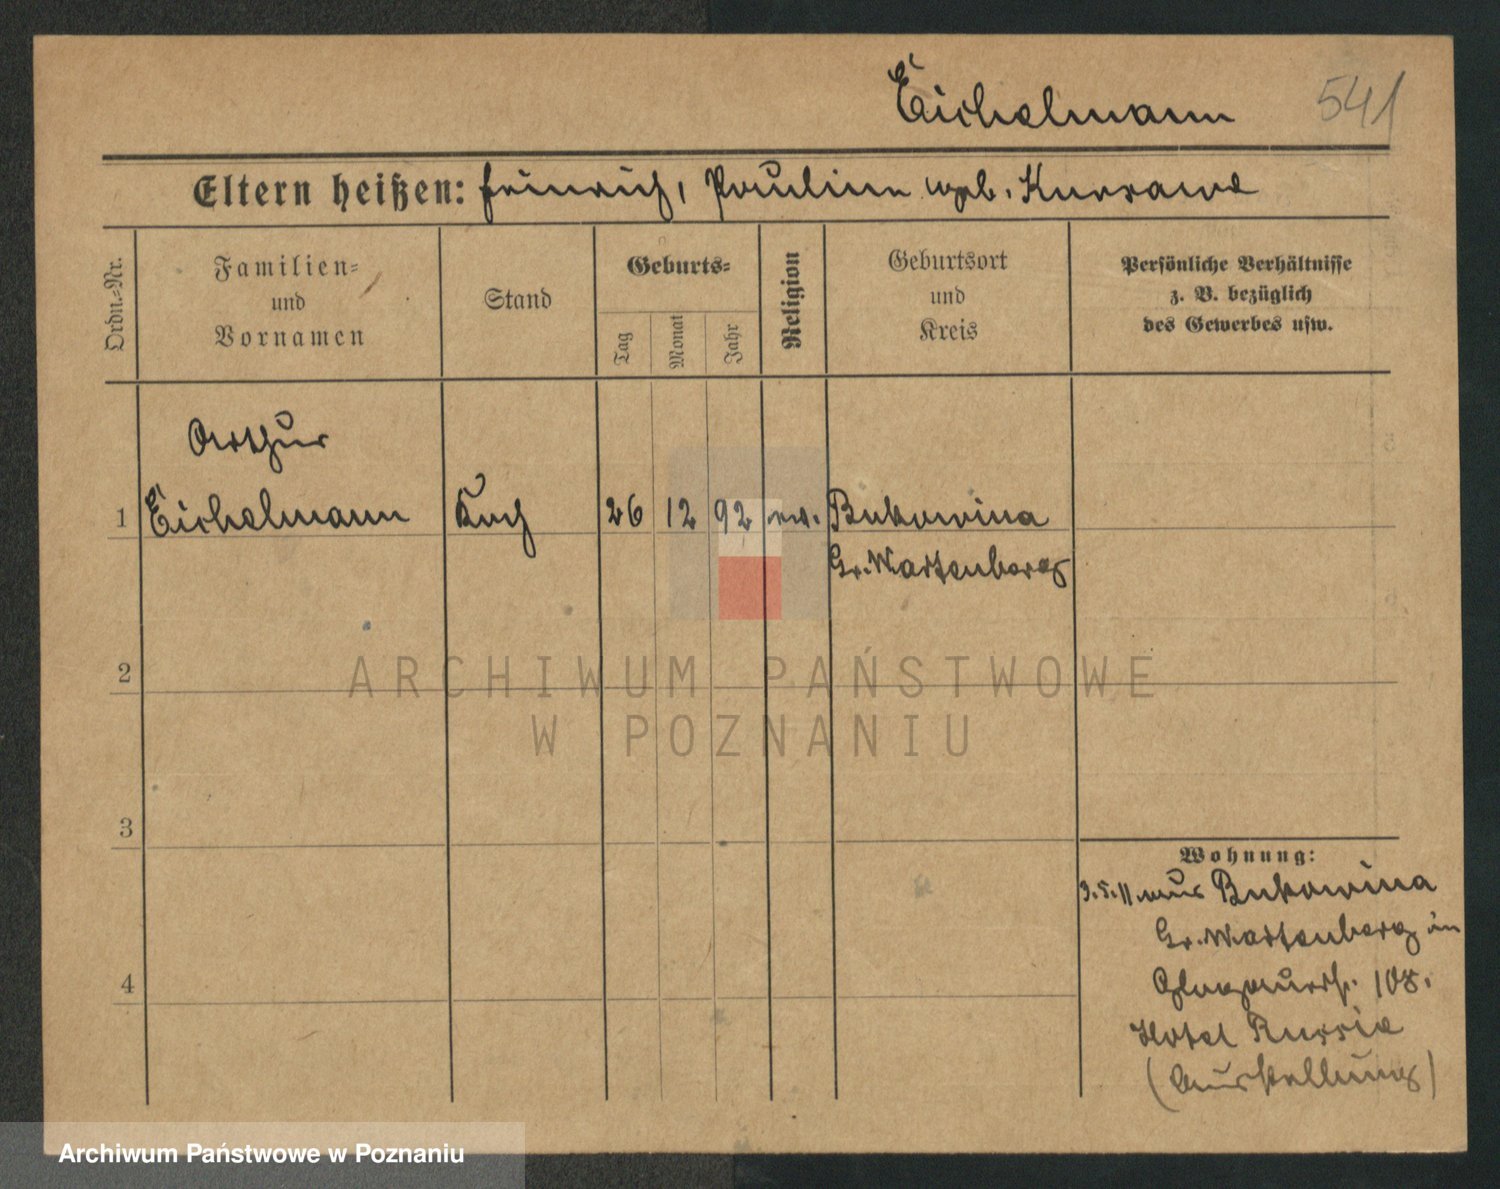 Eichelmann 541
Eltern heißen: Heinrich, Pauline geb. Kurrawe
Ordn.-Nr.
Familien-
und
Vornamen
Stand
Geburts-
Tag
Monat
Jahr
Religion
Geburtsort
und
Kreis
Persönliche Verhältnisse
z. B. bezüglich
des Gewerbes usw.
Arthur
1 Eichelmann Koch 26 12 92 ev. Bukowina
Gr. Wartenberg
2
3
4
Wohnung:
3.5.11 aus Bukowina
Gr. Wartenberg in
Glogauerstr. 108.
Hotel Russie
(Ausstellung)
ARCHIWUM PAŃSTWOWE
W POZNANIU
Archiwum Państwowe w Poznaniu